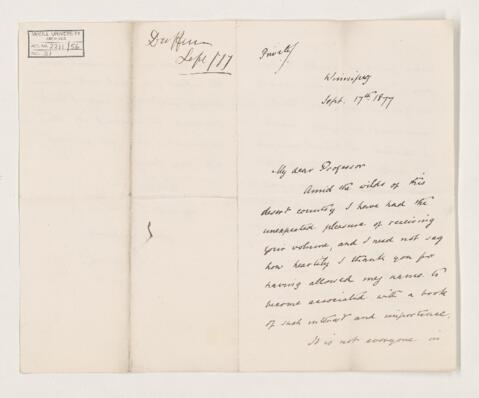 McGILL UNIVERSITY
ARCHIVES
ACC. NO. 2211/56
Dufferin
Sept /77
Private
Winnipeg
Sept. 17th 1877
My dear Professor
Amid the wilds of this
desert country I have had the
unexpected pleasure of receiving
your volume, and I need not say
how heartily I thank you for
having allowed my name to
become associated with a book
of such interest and importance.
It is not everyone in